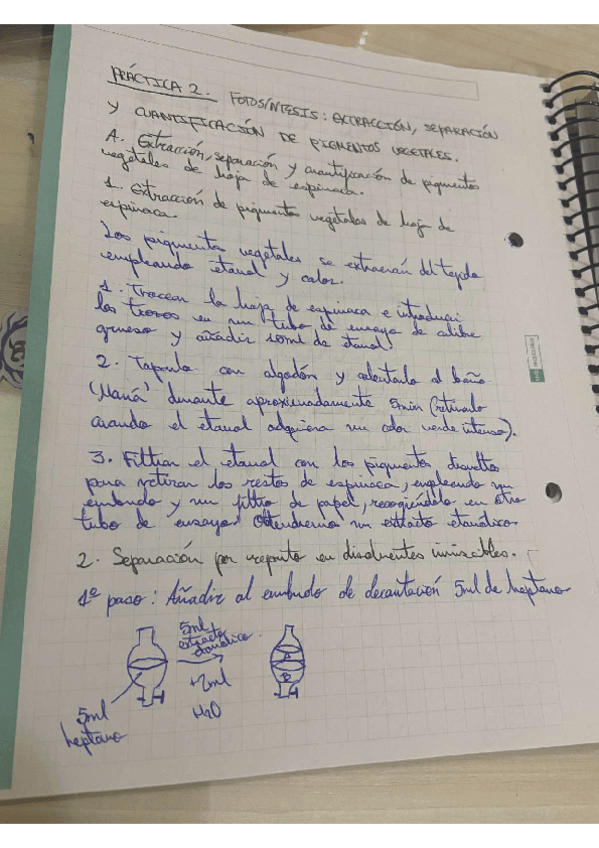 PRÁCTICA 2. FOTOSÍNTESIS: EXTRACCIÓN, SEPARACIÓN
Y CUANTIFICACIÓN DE PIGMENTOS VEGETALES.
A. Extracción, separación y cuantificación de pigmentos
vegetales de hoja de espinaca.
1. Extracción de pigmentos vegetales de hoja de
espinaca.
Los pigmentos vegetales se extraerán del tejido
empleando etanol y calor.
1. Trocear la hoja de espinaca e introducir
los trozos en un tubo de ensayo de calibre
grueso y añadir 10ml de etanol.
2. Taparlo con algodón y calentarlo al baño
María durante aproximadamente 5min (retirarlo
cuando el etanol adquiera un color verde intenso).
3. Filtrar el etanol con los pigmentos disueltos
para retirar los restos de espinaca, empleando un
embudo y un filtro de papel, recogiéndolo en otro
tubo de ensayo. Obtendremos un extracto etanólico.
2. Separación por reparto en disolventes inmiscibles.
1º paso: Añadir al embudo de decantación 5ml de heptano
5ml
extracto
etanólico
+2ml
H2O
A
B
5ml
heptano